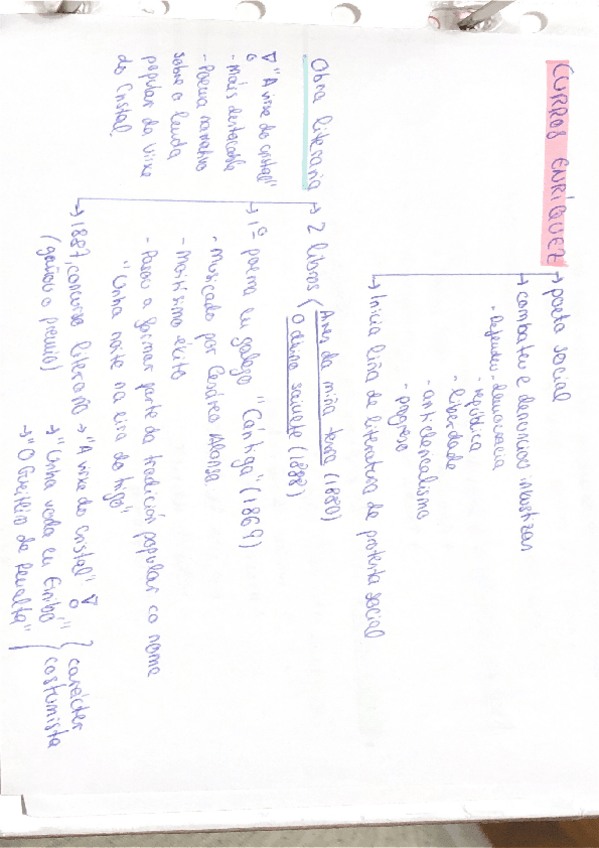 CURROS ENRÍQUEZ → poeta social
→ combateu e denunciou inxustizas
- Defendeu - democracia
- república
- liberdade
- anticlericalismo
- progreso
→ Inicia liña de literatura de protesta social
Obra literaria → 2 libros ( Aires da miña terra (1880)
O divino sainete (1888)
→ 1º poema en galego "Cántiga" (1869)
- Musicado por Cesáreo Alonso
- Moitísimo éxito
- Pasou a formar parte da tradición popular co nome
"Unha noite na eira do trigo"
→ 1887, concurso literario → "A virxe do cristal"
(gañou o premio) → "Unha voda en Einibó"
→ "O Gueiteiro de Penalta"
carácter
costumista
"A virxe do cristal"
- Máis destacable
- Poema narrativo
sobre a lenda
popular da virxe
do Cristal